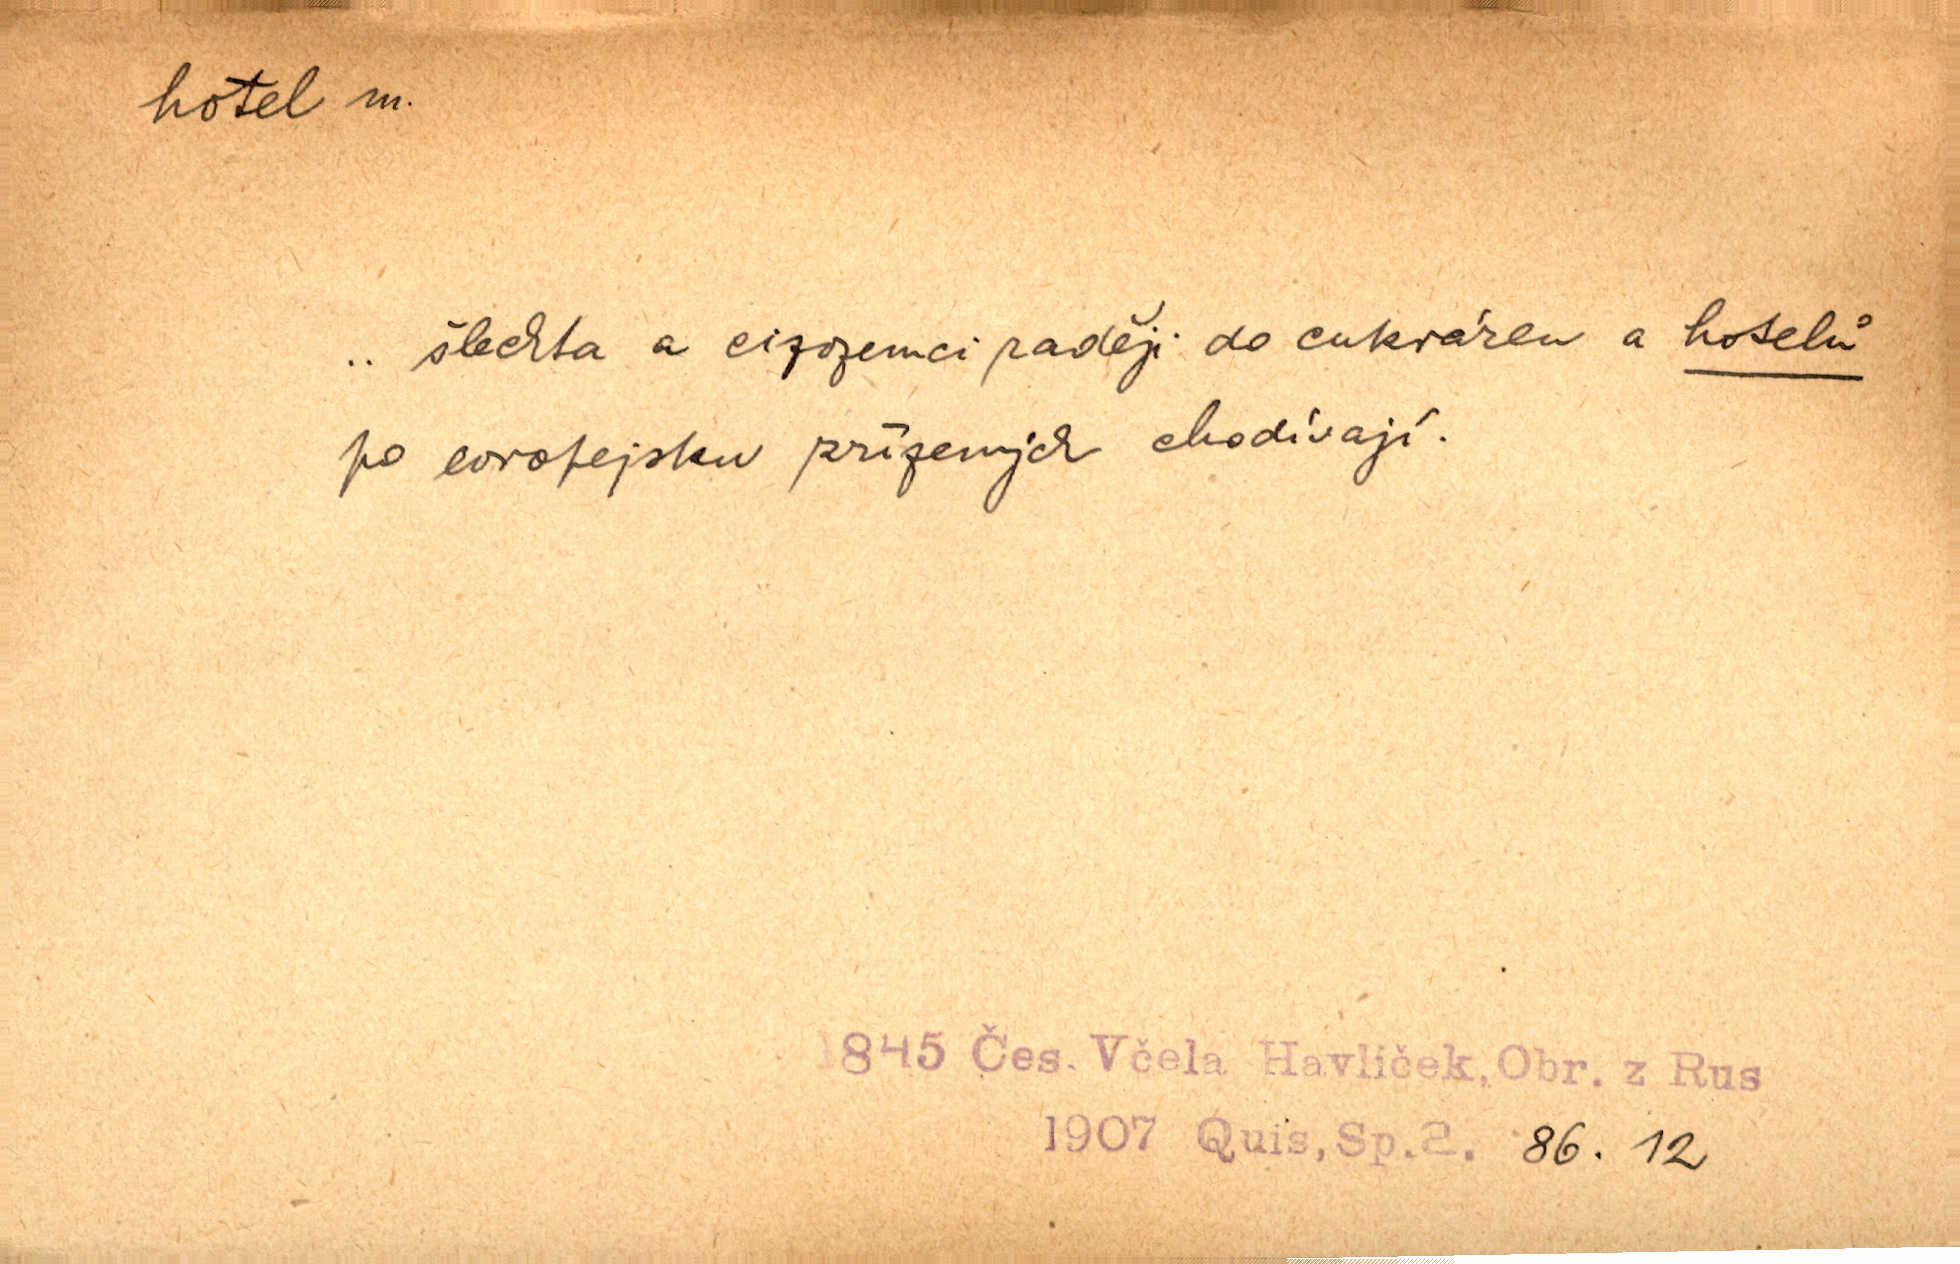 hotel m.
.. šlechta a cizozemci raději do cukráren a hotelů
po evropejsku zřízených chodívají.
1845 Čes. Včela Havlíček, Obr. z Rus
1907 Quis, Sp. 2. 86. 12